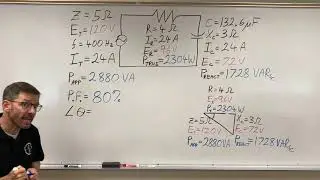 Z = 5Ω
E_T = 120 V
f = 400 Hz
I_T = 24 A
P_APP = 2880 VA
P.F. = 80%
∠θ =
R = 4 Ω
I_R = 24 A
E_R = 96 V
P_TRUE = 2304 W
C = 132.6 µF
X_C = 3 Ω
I_C = 24 A
E_C = 72 V
P_REACT = 1728 VAR_C
R = 4 Ω
E_R = 96V
P_T = 2304W
Z = 5Ω
E_T = 120V
P_APP = 2880VA
X_C = 3Ω
E_C = 72V
P_REACT = 1728VAR_C